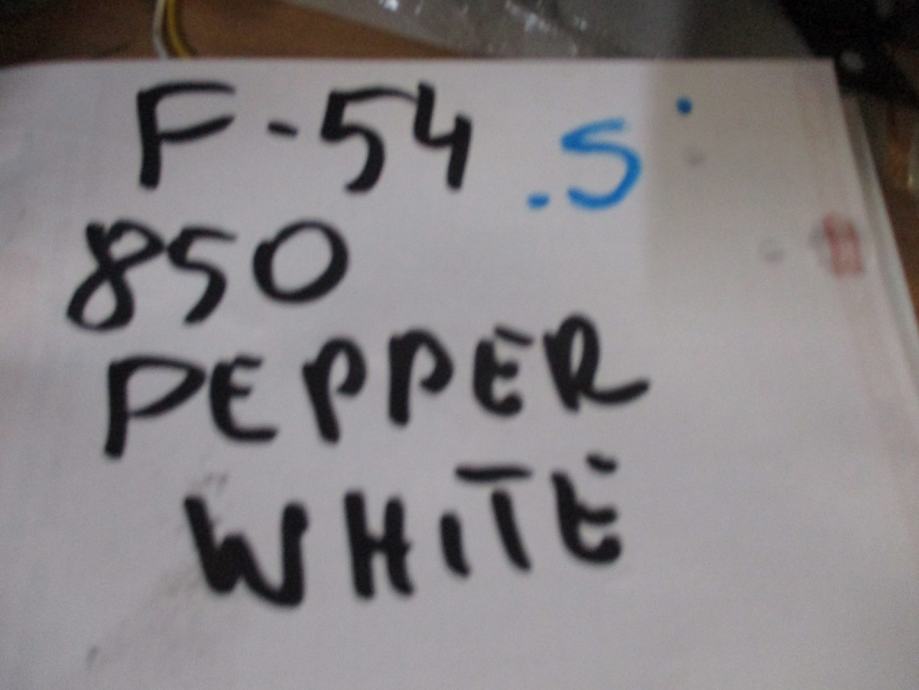 F-54 .S
850
PEPPER
WHITE